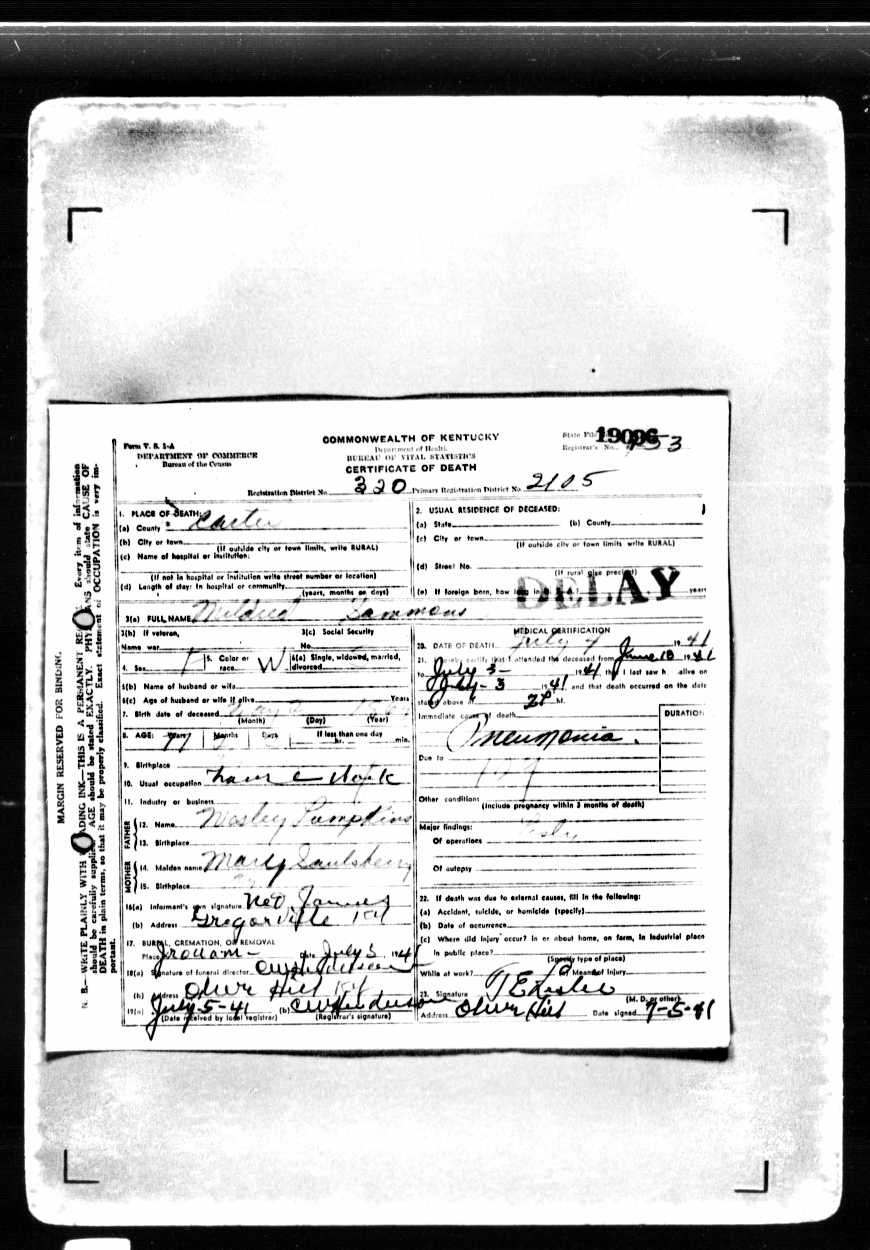 Form V. S. 1-A
DEPARTMENT OF COMMERCE
Bureau of the Census
COMMONWEALTH OF KENTUCKY
Department of Health
BUREAU OF VITAL STATISTICS
CERTIFICATE OF DEATH
State File
19096
Registrar's No. 753
Registration District No. 320 Primary Registration District No. 2105
MARGIN RESERVED FOR BINDING.
N. B.—WRITE PLAINLY WITH ADING INK—THIS IS A PERMANENT Every item of information
should be carefully AGE should be stated EXACTLY. should state CAUSE OF
DEATH in plain terms, so that it may be properly classified. Exact statement of OCCUPATION is very im-
portant.
1. PLACE OF DEATH:
(a) County Carter
(b) City or town
(If outside city or town limits, write RURAL)
(c) Name of hospital or institution:
(If not in hospital or institution write street number or location)
(d) Length of stay: In hospital or community
(years, months or days)
3(a) FULL NAME Mildred Sammons
3(b) If veteran,
Name war
3(c) Social Security
No.
4. Sex F 5. Color or race W 6(a) Single, widowed, married, divorced
6(b) Name of husband or wife
6(c) Age of husband or wife if alive Years
7. Birth date of deceased
(Month) (Day) (Year)
8. AGE: Years 77 Months Days If less than one day
hr. min.
9. Birthplace
10. Usual occupation
11. Industry or business
FATHER
12. Name Wesley Pumpkins
13. Birthplace
MOTHER
14. Maiden name Mary Saulsberry
15. Birthplace
16(a) Informant's own signature
(b) Address Gregorville Ky
17. BURIAL, CREMATION, OR REMOVAL
Place Date July 5 1941
18(a) Signature of funeral director
(b) Address Olive Hill
19(a) July-5-41 (b)
(Date received by local registrar) (Registrar's signature)
2. USUAL RESIDENCE OF DECEASED:
(a) State (b) County
(c) City or town
(If outside city or town limits, write RURAL)
(d) Street No.
(If rural give precinct)
(e) If foreign born, how years
DELAY
MEDICAL CERTIFICATION
20. DATE OF DEATH July 4 1941
21. I hereby certify that I attended the deceased from June 18 1941
to July 3- 1941 that I last saw h alive on
July-3 1941 and that death occurred on the date
stated above at 2P M.
Immediate cause of death
DURATION
Pneumonia.
Due to
Other conditions
(Include pregnancy within 3 months of death)
Major findings:
Of operations
Of autopsy
22. If death was due to external causes, fill in the following:
(a) Accident, suicide, or homicide (specify)
(b) Date of occurrence
(c) Where did injury occur? In or about home, on farm, in industrial place
in public place?
(Specify type of place)
While at work? Means of injury
23. Signature
(M. D. or other)
Address Olive Hill Date signed 7-5-41